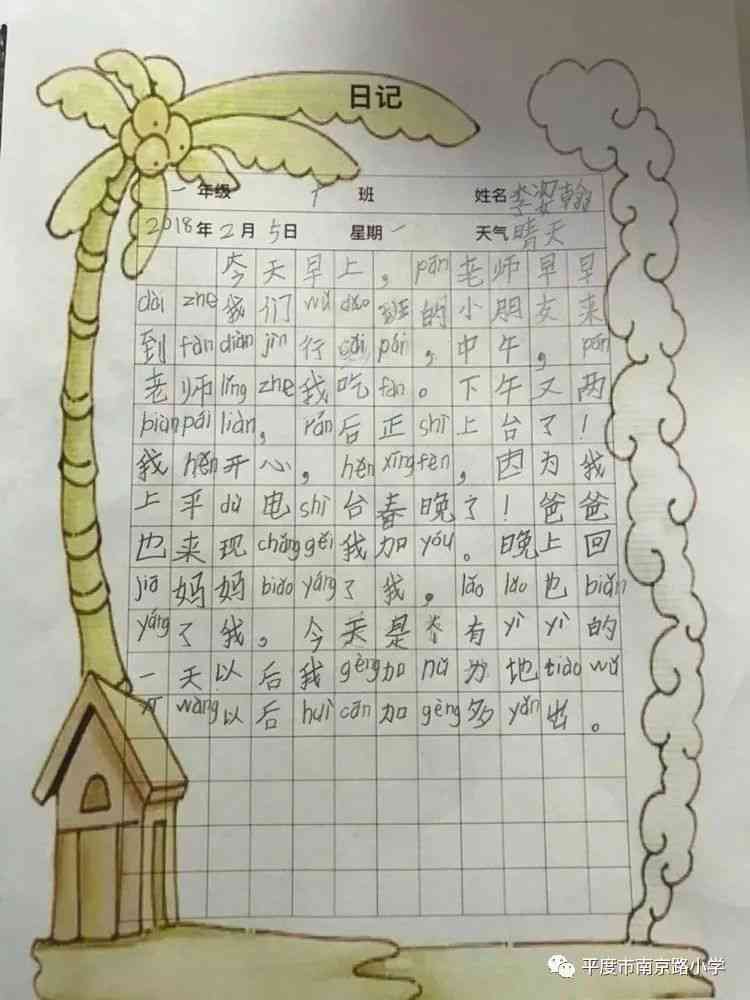 日记
一年级 1班 姓名 李翰
2018年2月5日 星期一 天气 晴天
今天早上，pān老师早早
dài zhe我们wǔ dǎo班的小朋友来
到fàn diàn jìn行cǎi pái，中午，pān
老师lǐng zhe我吃fàn。下午又两
biàn pái liàn，rán后正shì上台了！
我hěn开心，hěn xīng fèn，因为我
上平dù电shì台春晚了！爸爸
也来现chǎng gěi我加yóu。晚上回
jiā妈妈biǎo yáng了我。lǎo lao也biǎn
yáng了我。今天是个有yì yì的
一天以后我gèng加nǔ力地tiào wǔ
wàng以后huì cān加gèng多yǎn出。
平度市南京路小学